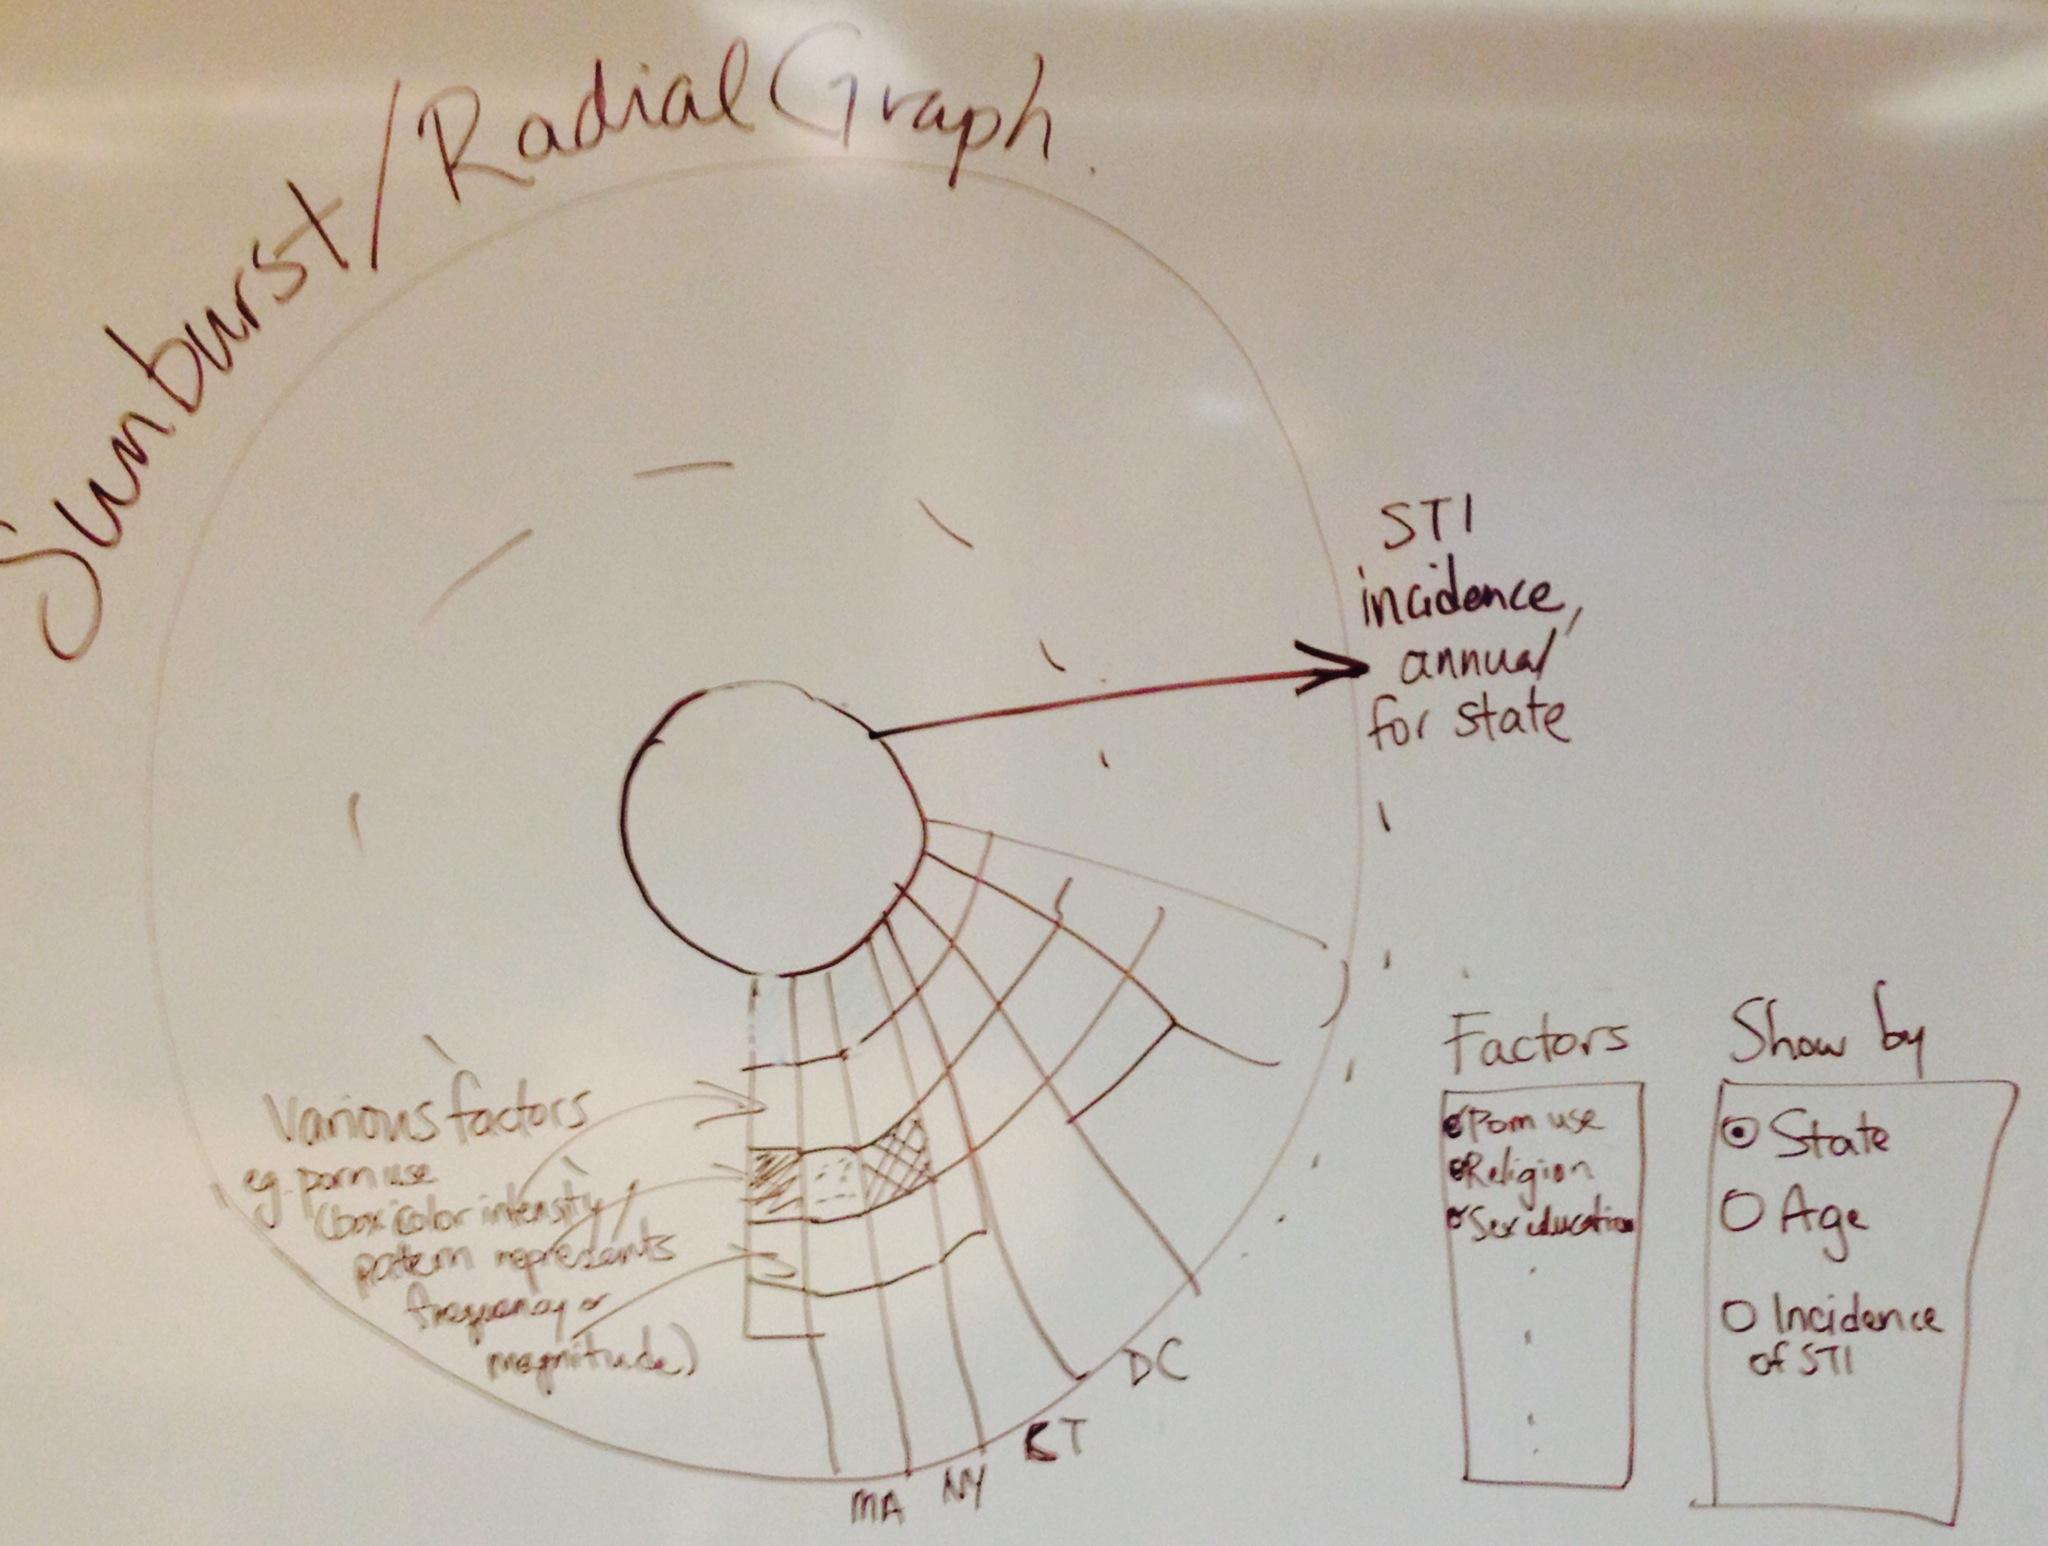 Sunburst/Radial Graph
STI
incidence,
annual
for state
Various factors
eg. porn use
(box/color intensity/
pattern represents
frequency or
magnitude)
MA
NY
CT
DC
Factors
Porn use
Religion
Sex education
Show by
State
Age
Incidence
of STI